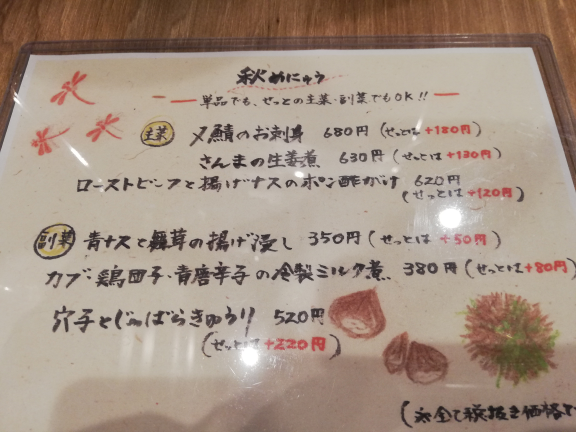 秋めにゅう
単品でも、せっとの主菜・副菜でもOK!!
主菜 〆鯖のお刺身 680円(せっとは+180円)
さんまの生姜煮 630円(せっとは+130円)
ローストビーフと揚げナスのポン酢がけ 620円
(せっとは+120円)
副菜 青ナスと舞茸の揚げ浸し 350円(せっとは+50円)
カブ・鶏団子・青唐辛子の冷製ミルク煮 380円(せっとは+80円)
穴子とじゃばらきゅうり 520円
(せっとは+220円)
(※全て税抜き価格で